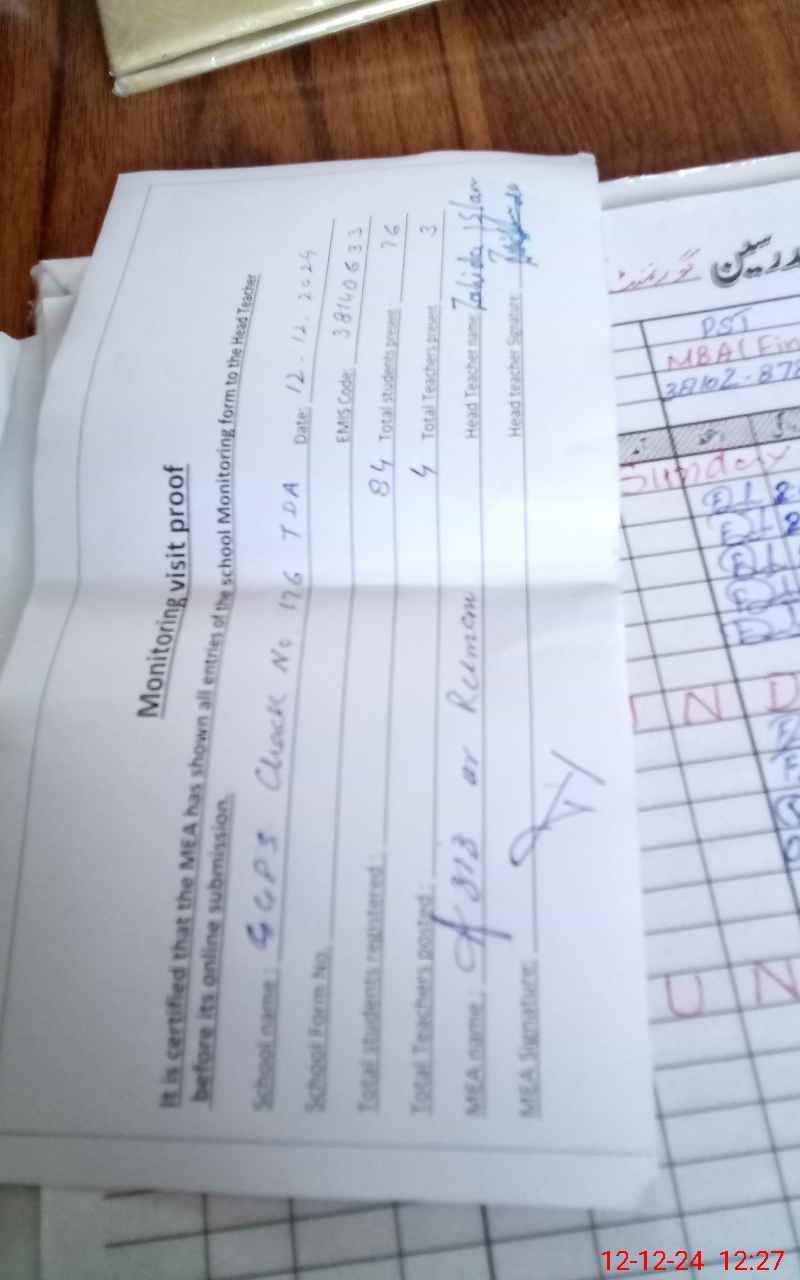 Monitoring visit proof
It is certified that the MEA has shown all entries of the school Monitoring form to the Head Teacher
before its online submission.
School name : GGPS Chack No 176 TDA Date: 12-12-2024
School Form No. EMIS Code: 38140633
Total students registered : 84 Total students present 76
Total Teachers posted : 4 Total Teachers present 3
MEA name : ur Rehman Head Teacher name Zahida Islam
MEA Signature: Head teacher Signature
مدرسین گورنمنٹ
PST
MBA (Fin
38102-878
Sunday
N D
U N
12-12-24 12:27